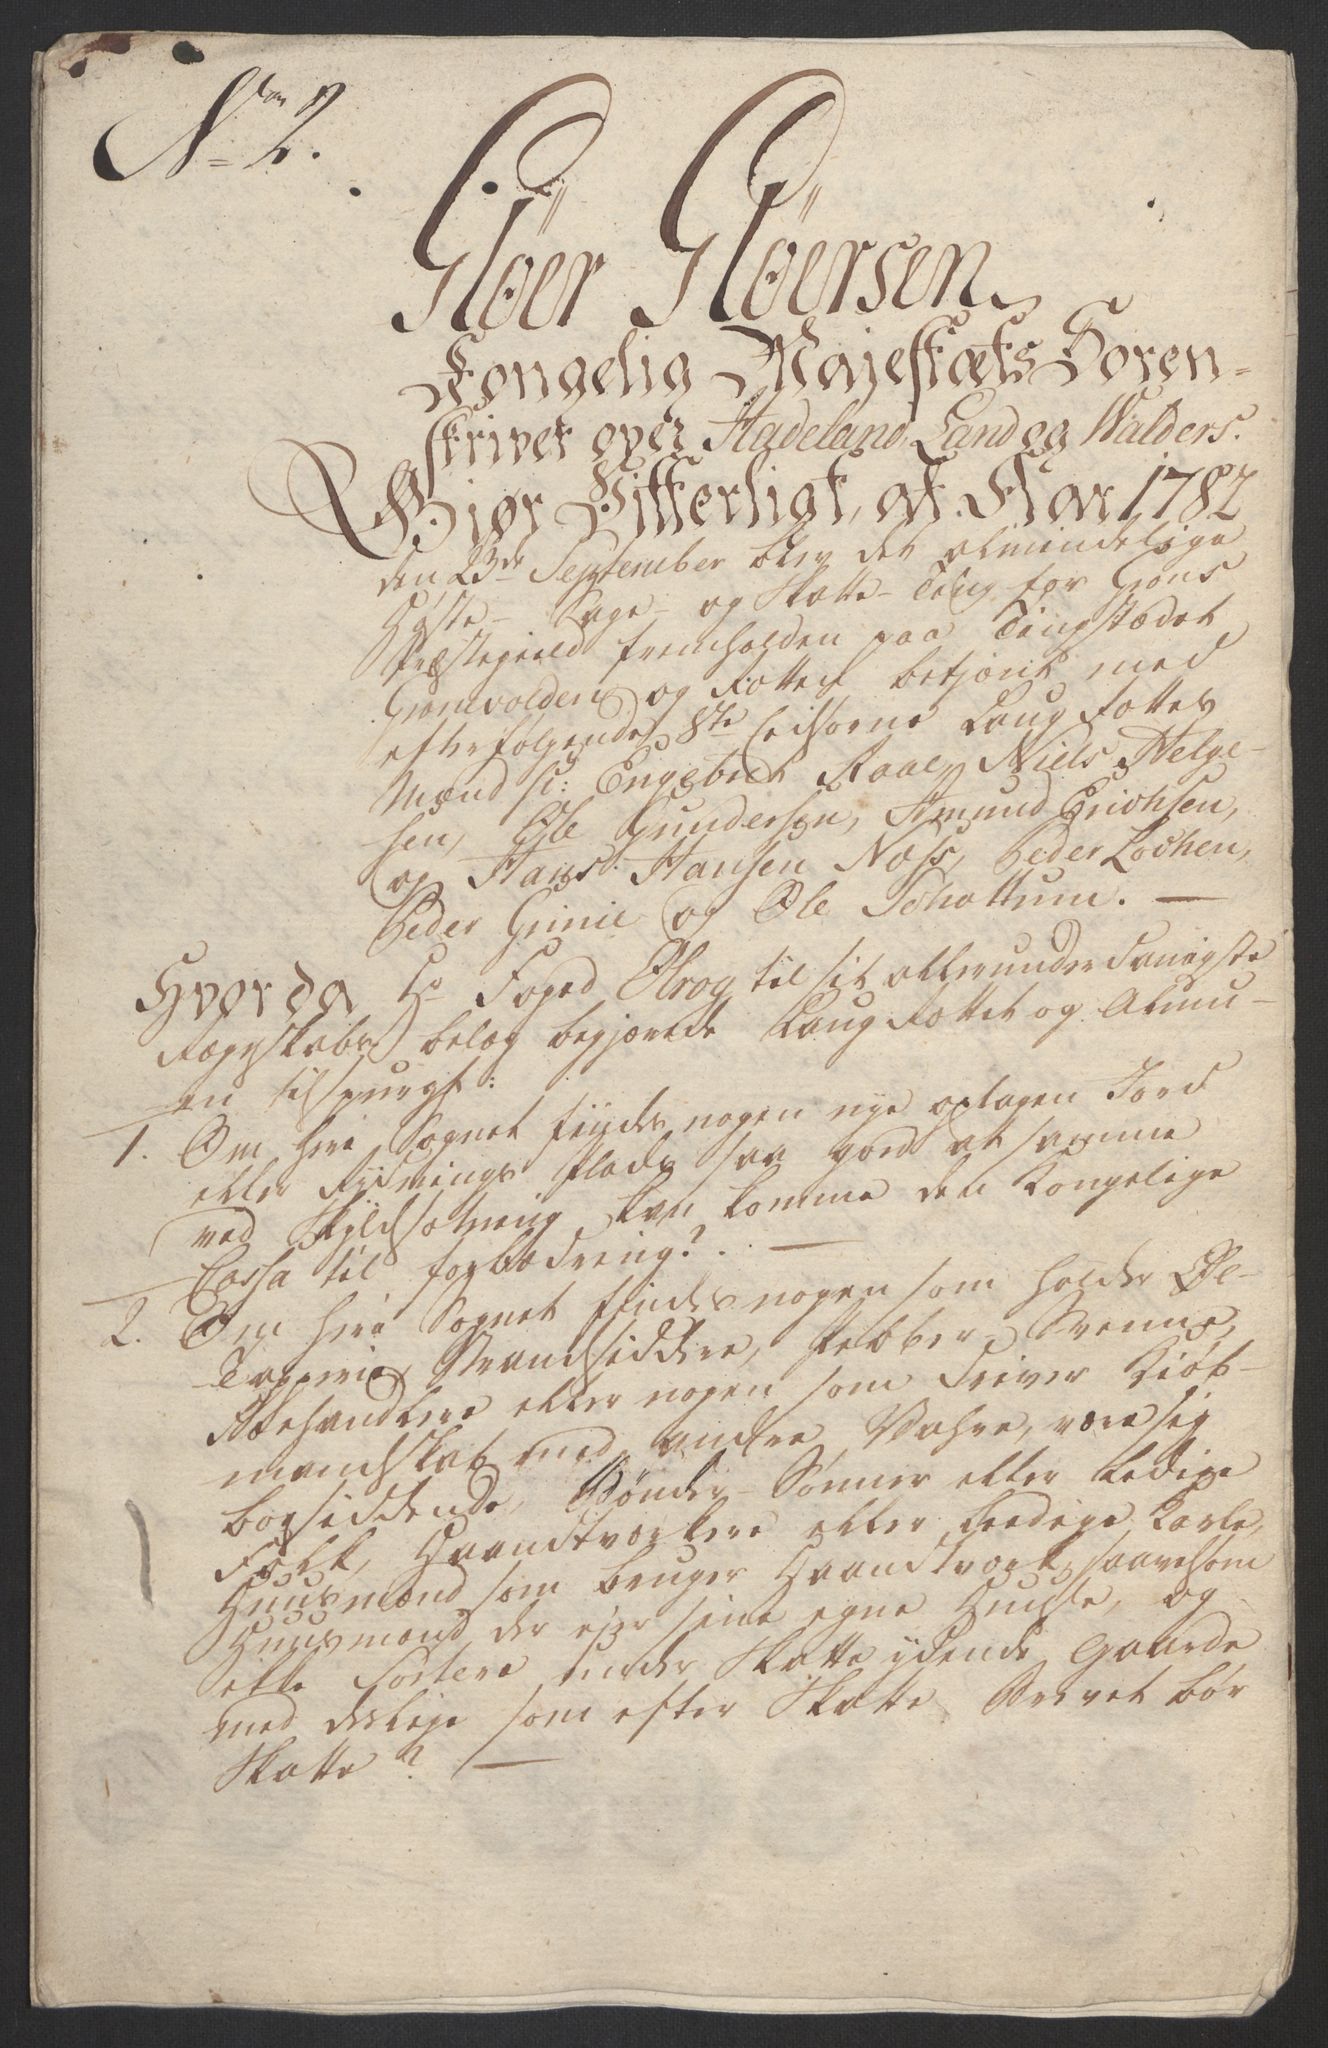 No 2.
Flöer Flöersen
Kongelig Majestæts Soren-
skriver over Hadeland, Land og Walders.
Giør Vitterligt, at Aar 1782
den 23de September blev det almindelige
Høste- Sage- og Skatte-Ting for Grans
Præstegield fremholden paa Tingstædet
Granvolden og Retten betjent med
efterfølgende 8te Eedsorne Laug Rettes
Mænd s: Engebret Raae, Niels Helge-
sen, Ole Gundersen, Amund Erichsen,
og Hans Hansen Næss, Peder Lochen,
Peder Grinie og Ole Schattum. —
Hvorda Hr Foged Ølrog til sit allerunderdanigste
Regnskabs belæg begjærede Laug Rettet og Almu-
en tilspurgt:
1. Om her i Sognet findes nogen nye optagen Jord
eller Rydnings Plads saa god at samme
ved Skyldsætning kan komme den Kongelige
Cassa til forbædring? . —
2. Om her i Sognet findes nogen som holder Øl-
Tapperie, Strandsiddere, Pebber-Svenne,
Ræehandlere eller nogen som driver Kiøb-
mandskab med andre Vahre, være sig
boesiddende, Bønder-Sønner eller ledige
Folk, Haandtværkere eller leedige Karle,
Huusmænd som bruger Haandtværk, saavelsom
Huusmænd der ejer sine egne Huuse, og
ikke sortere under Skatte ydende Gaarde
med deslige som efter Skatte Brevet bør
Skatte? —